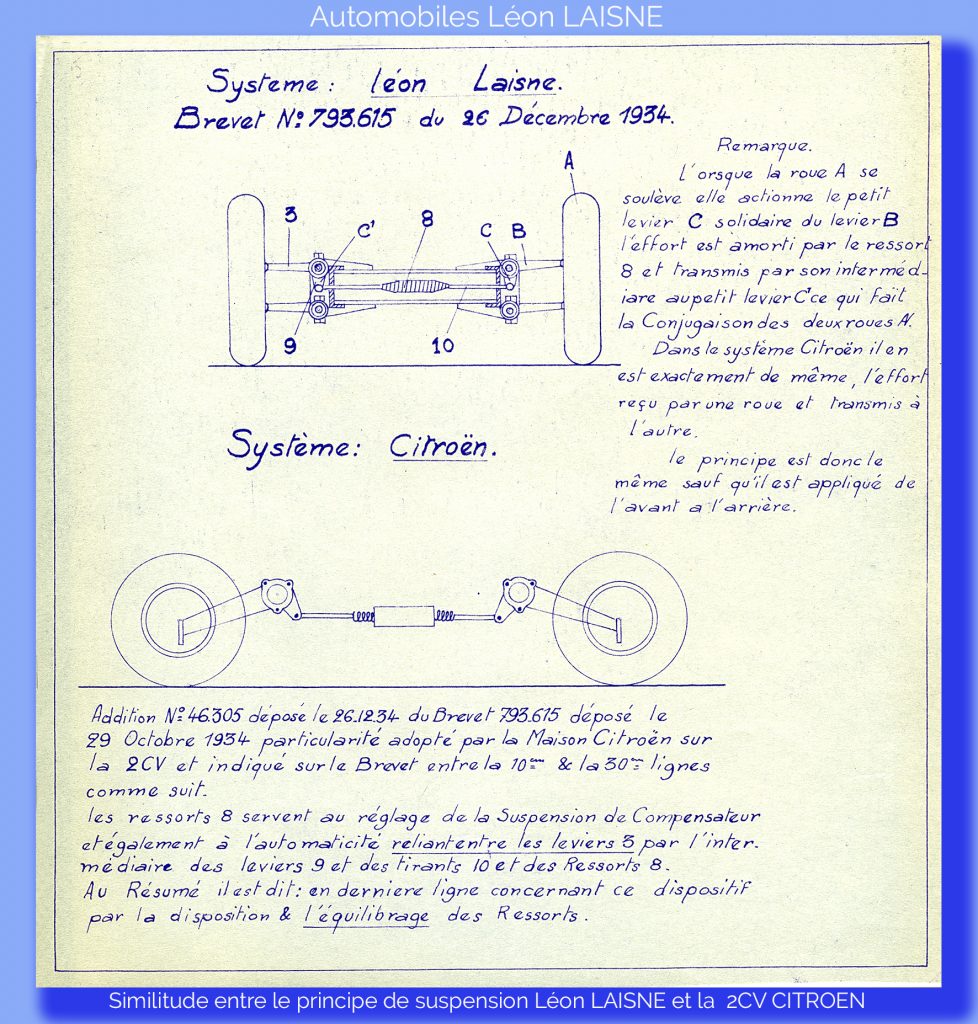 Automobiles Léon LAISNE
Systeme: léon Laisne.
Brevet No: 793.615 du 26 Décembre 1934.
Remarque.
L'orsque la roue A se
soulève elle actionne le petit
levier C solidaire du levier B
l'effort est amorti par le ressort
8 et transmis par son interméd-
iare au petit levier C' ce qui fait
la Conjugaison des deux roues A'.
Dans le système Citroën il en
est exactement de même, l'effort
reçu par une roue et transmis à
l'autre.
le principe est donc le
même sauf qu'il est appliqué de
l'avant a l'arrière.
A
3
C'
8
C
B
9
10
Système: Citroën.
Addition No 46.305 déposé le 26.12.34 du Brevet 793.615 déposé le
29 Octobre 1934 particularité adopté par la Maison Citroën sur
la 2CV et indiqué sur le Brevet entre la 10ème & la 30ème lignes
comme suit.
les ressorts 8 servent au réglage de la Suspension de Compensateur
et également à l'automaticité reliant entre les leviers 3 par l'inter-
médiaire des leviers 9 et des tirants 10 et des Ressorts 8.
Au Résumé il est dit: en derniere ligne concernant ce dispositif
par la disposition & l'équilibrage des Ressorts.
Similitude entre le principe de suspension Léon LAISNE et la 2CV CITROEN